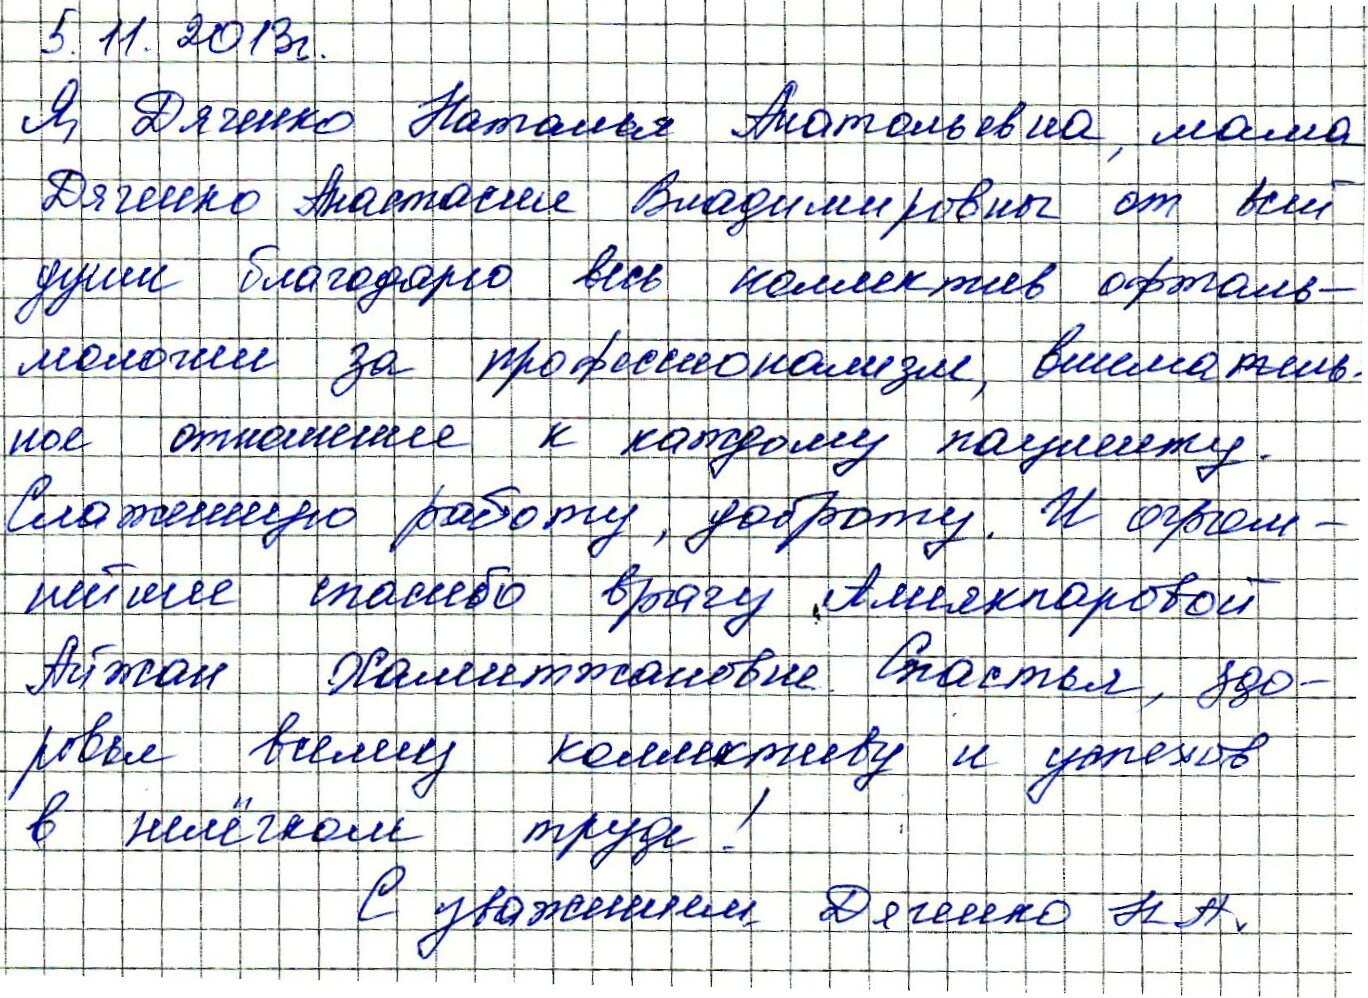 5.11.2013г.
Я, Дяченко Наталья Анатольевна, мама
Дяченко Анастасии Владимировны от всей
души благодарю весь коллектив офталь-
мологии за профессионализм, вниматель-
ное отношение к каждому пациенту.
Слаженную работу, доброту. И огром-
нейшее спасибо врачу Алиакпаровой
Айжан Хамитжановне. Счастья, здо-
ровья всему коллективу и успехов
в нелёгком труде!
С уважением Дяченко Н.А.